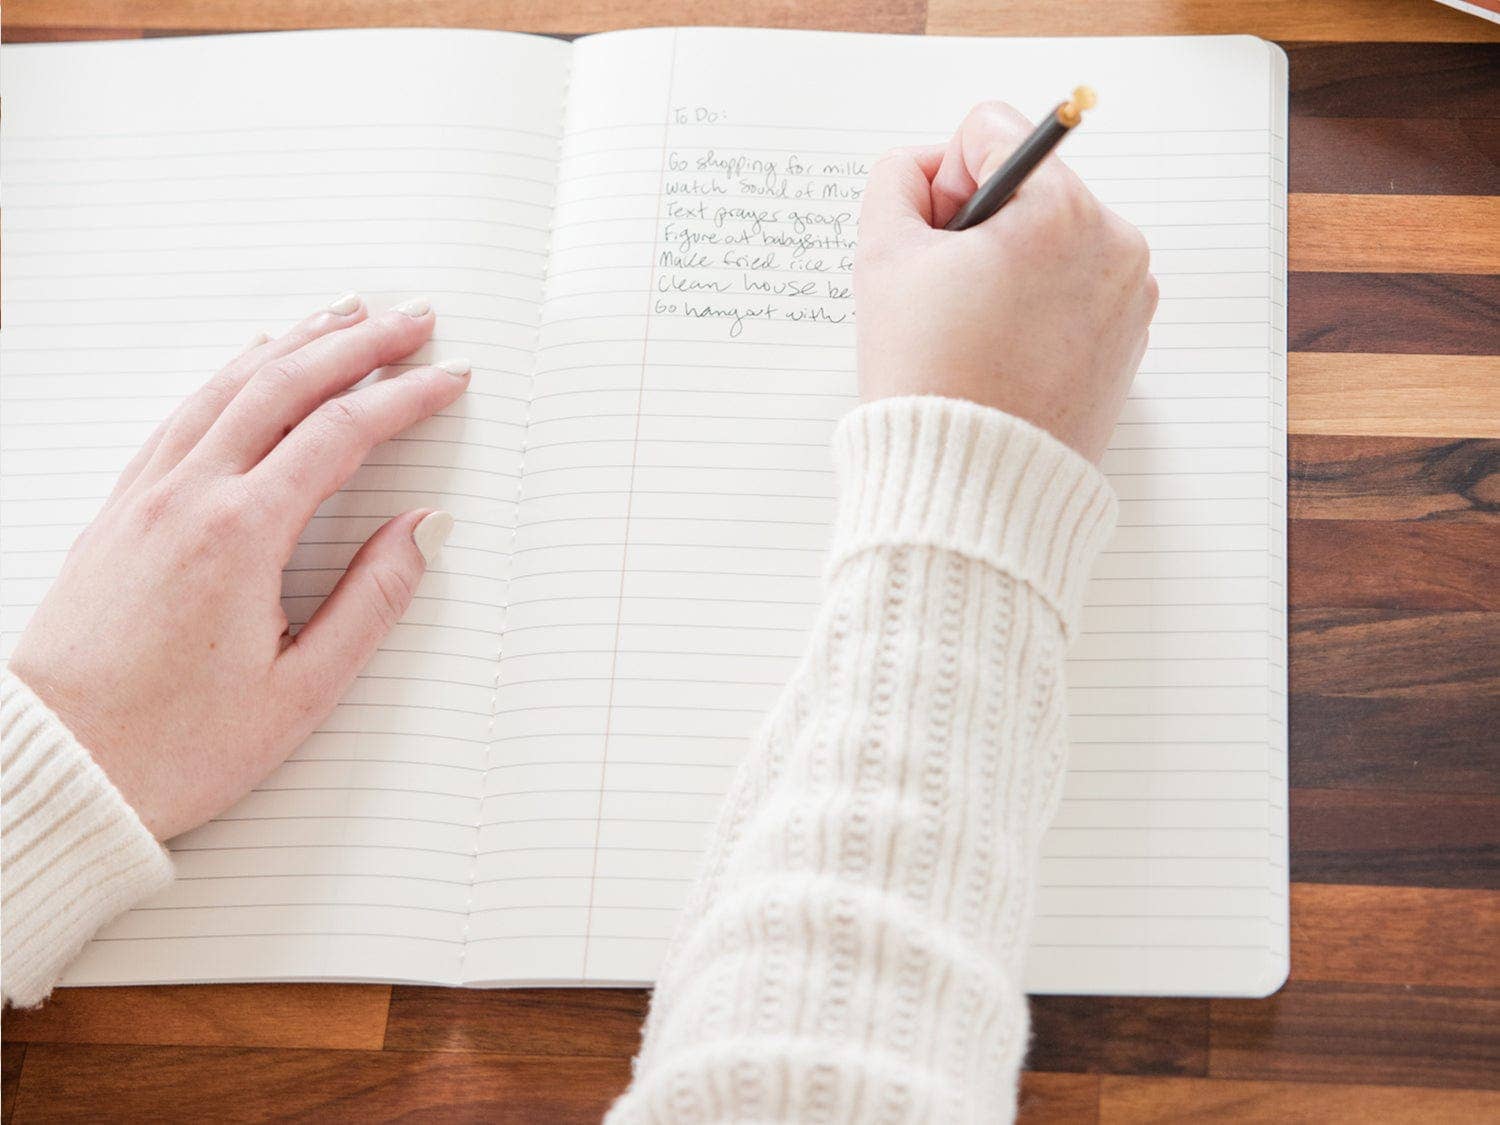 To Do:
Go shopping for milk
watch Sound of Mus
Text prayer group
Figure out babysittin
Make fried rice fo
Clean house be
Go hangout with